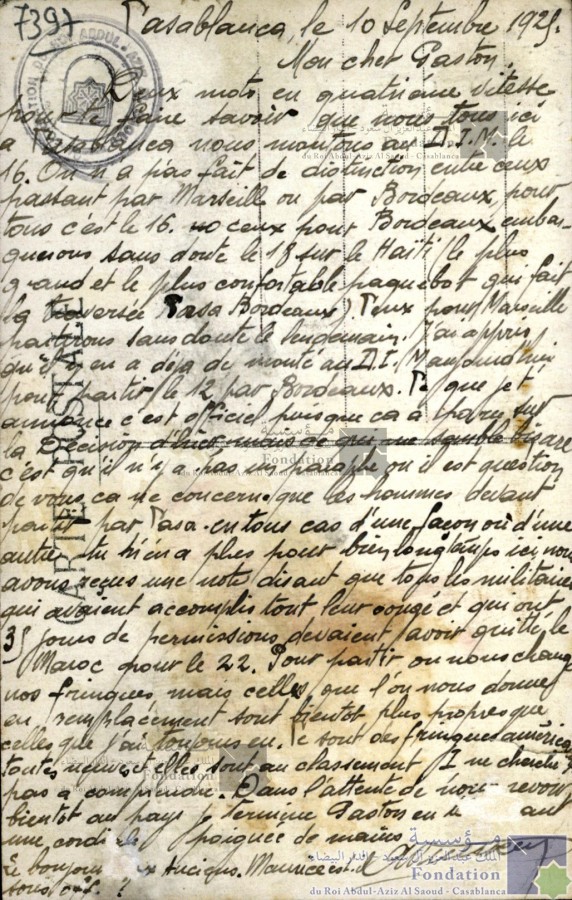 7397
Casablanca, le 10 Septembre 1925.
Mon cher Gaston.
Deux mots en quatrième vitesse
pour te faire savoir que nous tous ici
a Casablanca nous montons au D.I.M. le
16. On n'a pas fait de distinction entre ceux
passant par Marseille ou par Bordeaux, pour
tous c'est le 16. ceux pour Bordeaux embar-
querons sans doute le 18 sur le Haïti (le plus
grand et le plus confortable paquebot qui fait
la traversée Casa Bordeaux) Ceux pour Marseille
partirons sans doute le lendemain. J'ai appris
qu'il y en a déja de monté au D.I.M. aujourd'hui
pour partir le 12 par Bordeaux. Ce que je t'
annonce c'est officiel puisque ca a paru sur
la Décision d'hier, mais ce qui me semble bizare
c'est qu'il n'y a pas un paraphe ou il est question
de vous, ca ne concerne que les hommes devant
partir par Casa. en tous cas d'une façon ou d'une
autre tu n'en a plus pour bien longtemps ici nous
avons reçus une note disant que tous les militaires
qui avaient accomplis tout leur congé et qui ont
35 jours de permissions devaient avoir quitté le
Maroc pour le 22. Pour partir on nous change
nos fringues mais celles que l'on nous donne
en remplacement sont bientot plus propres que
celles que j'ai toujours eu. Ce sont des fringues américa
toutes neuves et elles sont au classement. Je ne cherche
pas a comprendre. Dans l'attente de nous revoir
bientot au pays je termine Gaston en
une poignée de mains
Le bonjour Anciens. Maurice est
CARTE POSTALE
مؤسسة
الملك عبد العزيز آل سعود - الدار البيضاء
Fondation
du Roi Abdul-Aziz Al Saoud - Casablanca